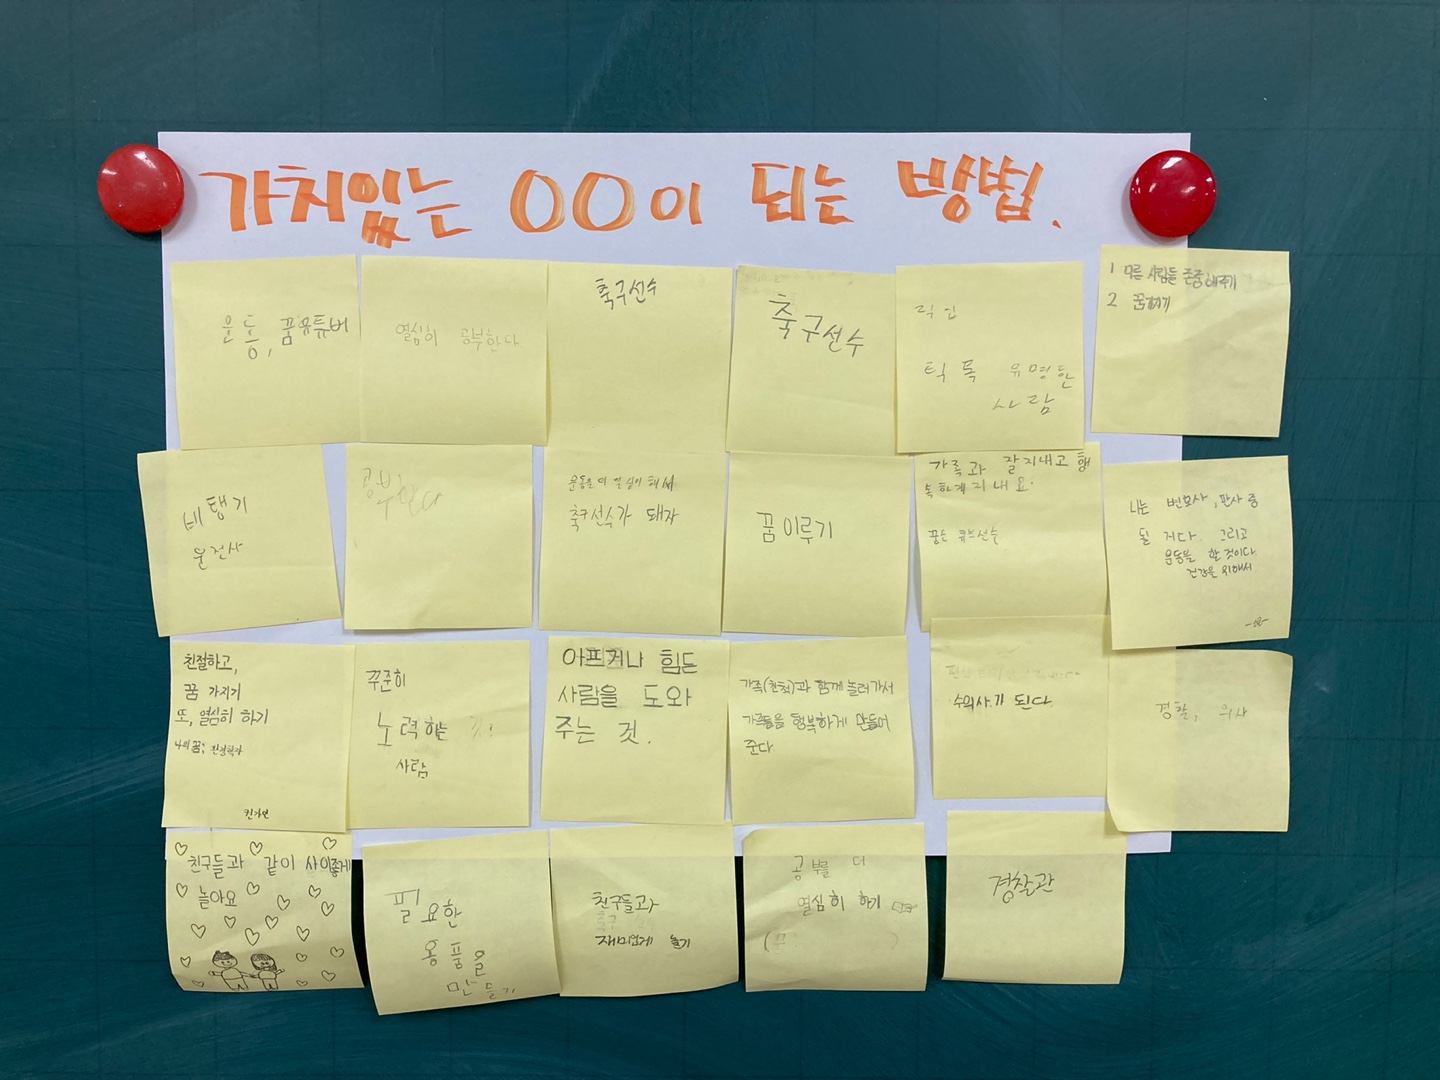 가치있는 OO이 되는 방법.
운동, 꿈유튜버
열심히 공부한다
축구선수
축구선수
틱톡 유명한
사람
1 다른 사람을 존중해주기
2 꿈찾기
운전사
공부한다
축구선수가 돼자
꿈 이루기
가족과 잘지내고 행
복하게 지내요.
꿈은 큐브선수
나는 변호사, 판사 중
될 거다. 그리고
운동을 할 것이다.
건강을 위해서
친절하고,
꿈 가지기
또, 열심히 하기
나의 꿈:
꾸준히
노력하는
사람
아프거나 힘든
사람을 도와
주는 것.
가족(친척)과 함께 놀러가서
가족들을 행복하게 만들어
준다
수의사가 된다.
경찰, 의사
친구들과 같이 사이좋게
놀아요
필요한
용품을
만들기
친구들과
재미있게 놀기
공부를 더
열심히 하기
경찰관